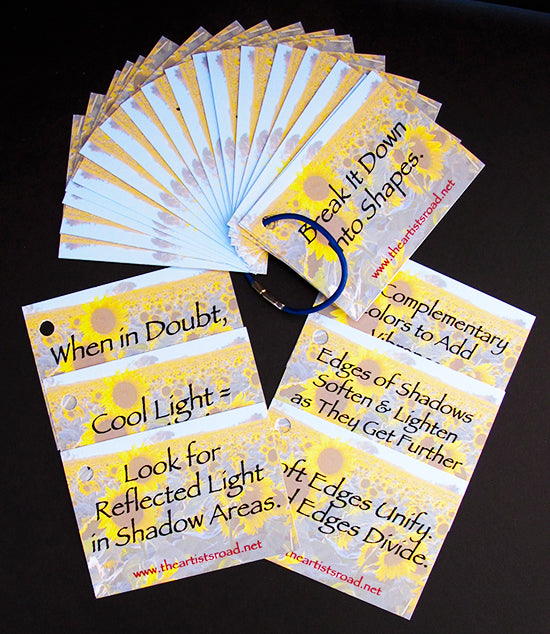 Break It Down
Into Shapes.
www.theartistsroad.net
When in Doubt,
Cool Light =
Look for
Reflected Light
in Shadow Areas.
www.theartistsroad.net
Complementary
Colors to Add
Edges of Shadows
Soften & Lighten
as They Get Further
Soft Edges Unify.
Edges Divide.
www.theartistsroad.net